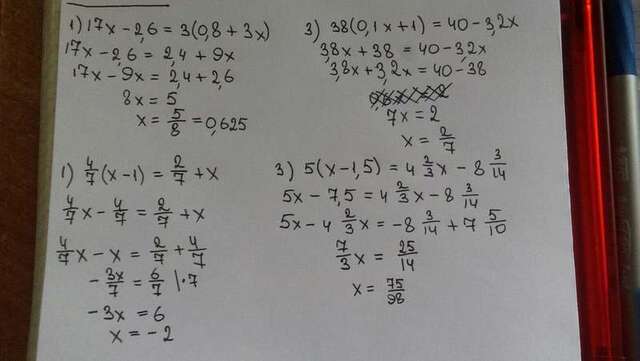 1) 17x - 2,6 = 3(0,8 + 3x)
17x - 2,6 = 2,4 + 9x
17x - 9x = 2,4 + 2,6
8x = 5
x = 5/8 = 0,625
3) 38(0,1x + 1) = 40 - 3,2x
3,8x + 38 = 40 - 3,2x
3,8x + 3,2x = 40 - 38
7x = 2
x = 2/7
1) 4/7(x - 1) = 2/7 + x
4/7x - 4/7 = 2/7 + x
4/7x - x = 2/7 + 4/7
- 3x/7 = 6/7 |·7
- 3x = 6
x = - 2
3) 5(x - 1,5) = 4 2/3x - 8 3/14
5x - 7,5 = 4 2/3x - 8 3/14
5x - 4 2/3x = - 8 3/14 + 7 5/10
7/3x = 25/14
x = 75/98